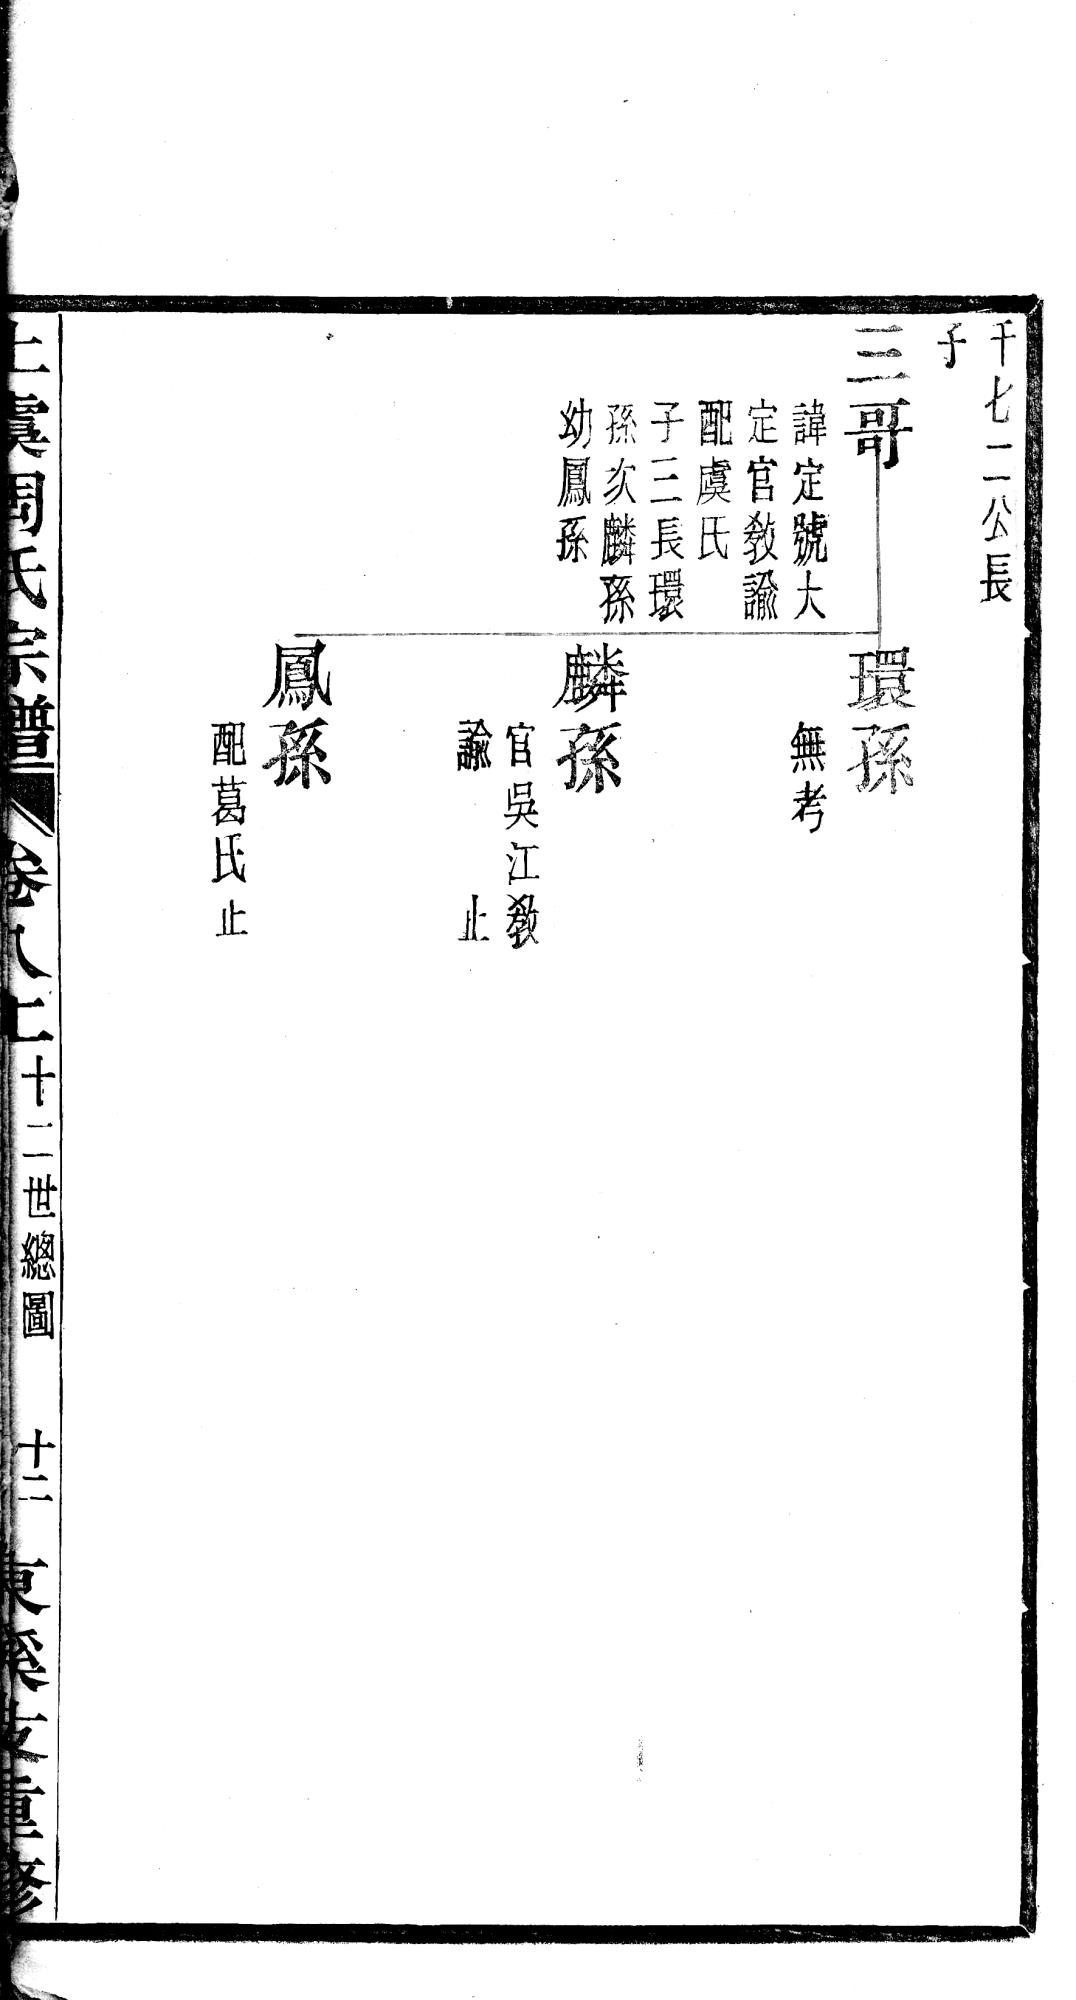 千七二公長
子
三哥
諱定號大
定官敎諭
配虞氏
子三長環
孫次麟孫
幼鳳孫
環孫
無考
麟孫
官吳江敎
諭　　止
鳳孫
配葛氏止
上虞周氏宗譜　卷八上　十二世總圖　十二　東溪支重修